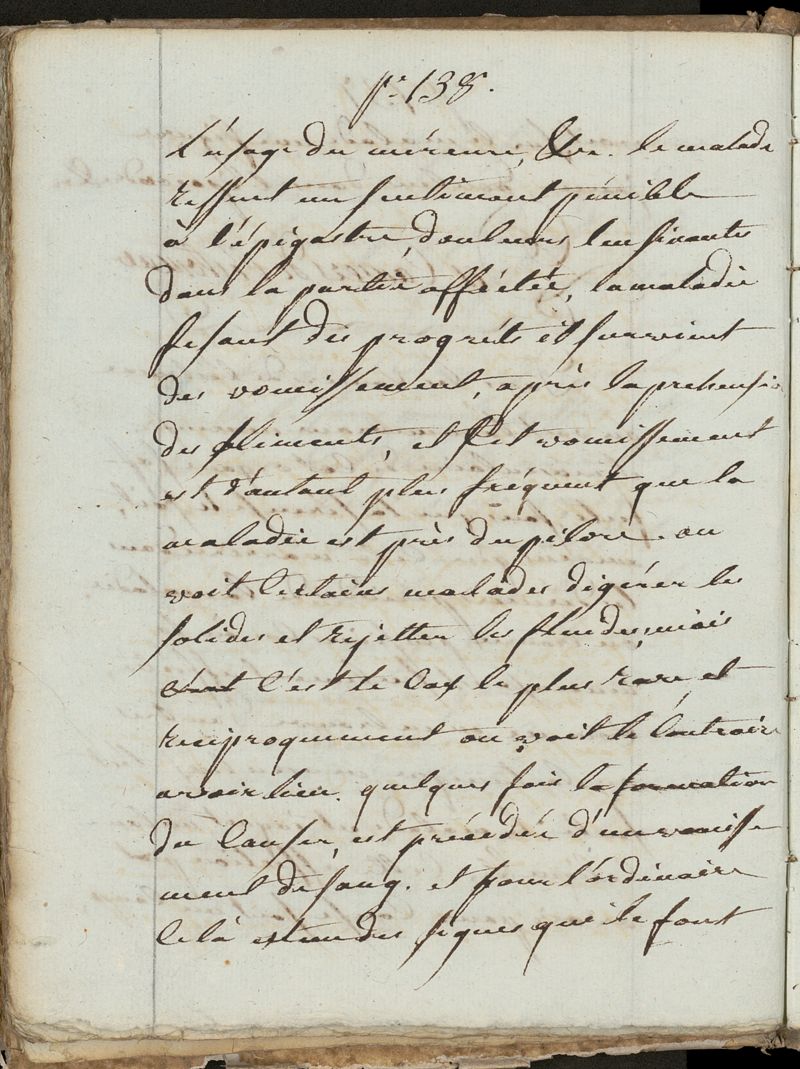 p.e 138.
L'usage du mércure, &ca. le malade
ressent un sentiment pénible
à l'épigastre, douleurs lensinantes
dans la partie afféctée, la maladie
fesant des progrèts il survient
des vomissement, après la prehensio
des aliments, et set vomissement
est d'autant plus fréquent que la
maladie est près du pilore. on
voit certains malades digérer les
solides et rejetter les fluides, mais
c'est le cas le plus rare, et
reciproquement on voit le contraire
avoir lieu. quelques fois la formation
du canser, est précédée d'un vomisse
ment de sang. et pour l'ordinaire
celà est un des signes qui le font